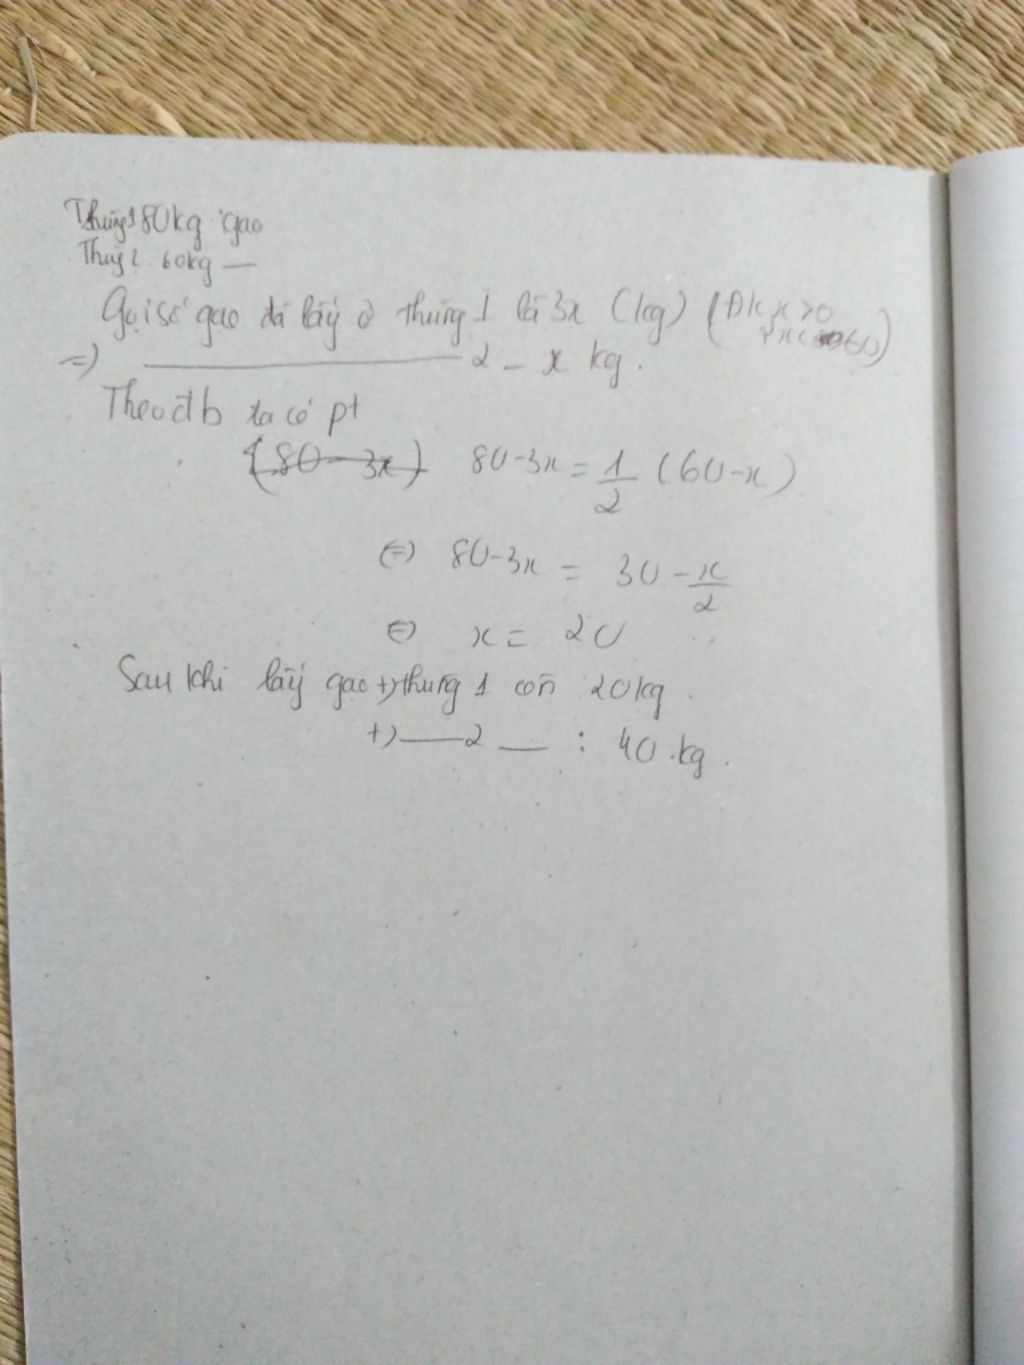 Thùng1 80kg gạo
Thùng 2. 60kg —
Gọi số gạo đã lấy ở thùng 1 là 3x (kg) (Đk x>0
x<60)
=> ——— 2 – x kg.
Theo đb ta có pt
(80-3x) 80-3x = 1/2 (60-x)
<=> 80-3x = 30 - x/2
<=> x = 20
Sau khi lấy gạo +) thùng 1 còn 20kg.
+) — 2 — : 40 kg.